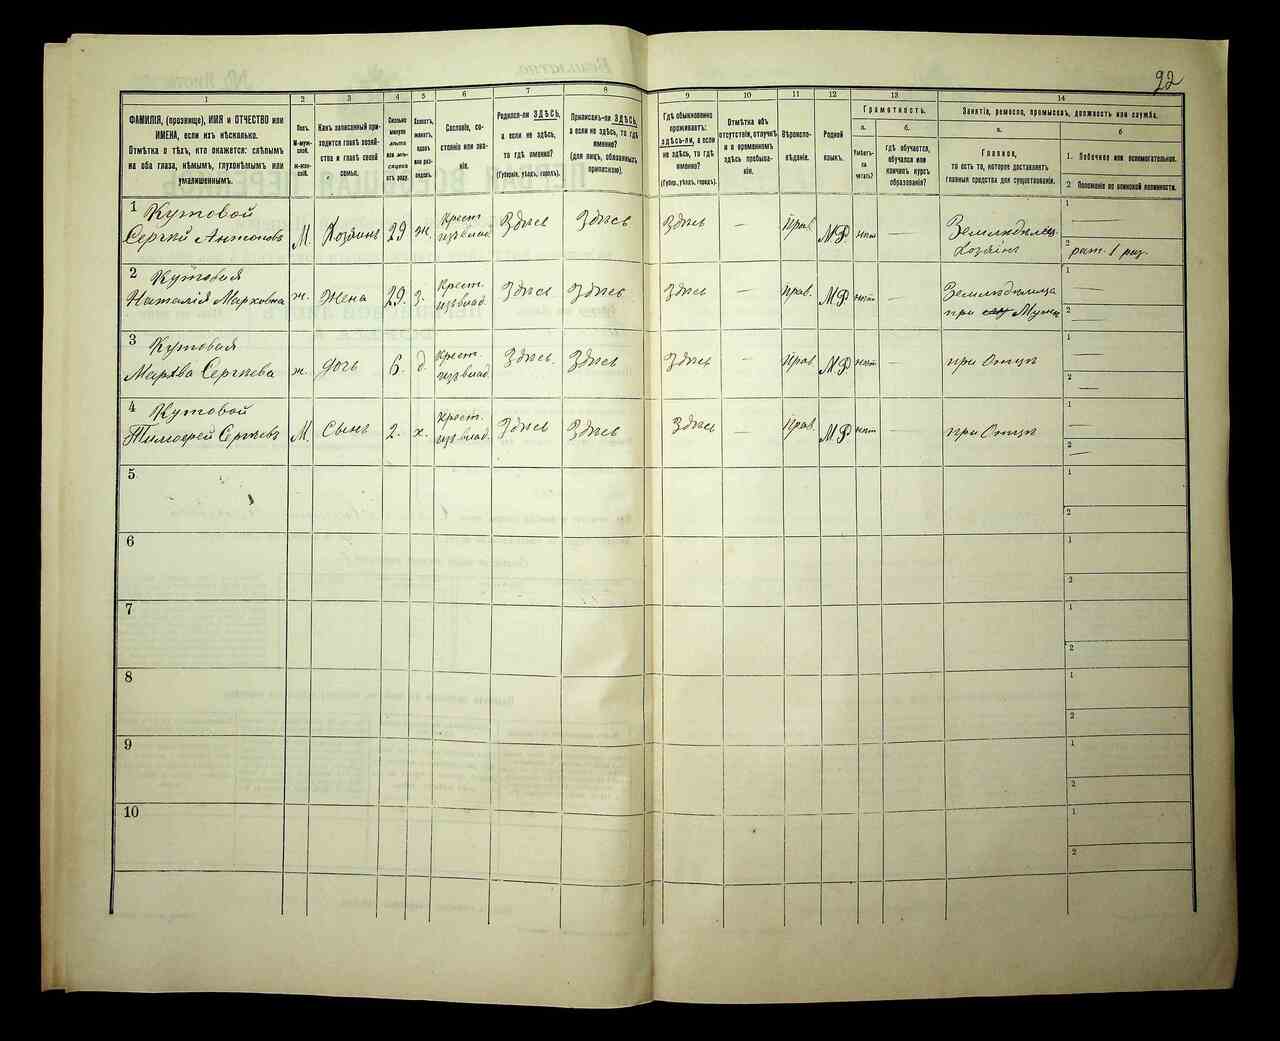 92
1
2
3
4
5
6
7
8
9
10
11
12
13
14
ФАМИЛІЯ, (прозвище), ИМЯ и ОТЧЕСТВО или
ИМЕНА, если ихъ нѣсколько.
Отмѣтка о тѣхъ, кто окажется: слѣпымъ
на оба глаза, нѣмымъ, глухонѣмымъ или
умалишеннымъ.
Полъ.
М-муж-
ской.
Ж-жен-
скій.
Какъ записанный при-
ходится главѣ хозяй-
ства и главѣ своей
семьи.
Сколько
минуло
лѣтъ
или мѣ-
сяцевъ
отъ роду.
Холостъ,
женатъ,
вдовъ
или раз-
веденъ.
Сословіе, со-
стояніе или зва-
ніе.
Родился-ли ЗДѢСЬ,
а если не здѣсь,
то гдѣ именно?
(Губернія, уѣздъ, городъ).
Приписанъ-ли ЗДѢСЬ,
а если не здѣсь, то гдѣ
именно?
(для лицъ, обязанныхъ
припискою).
Гдѣ обыкновенно
проживаетъ:
здѣсь-ли, а если
не здѣсь, то гдѣ
именно?
(Губер., уѣздъ, городъ).
Отмѣтка объ
отсутствіи, отлучкѣ
и о временномъ
здѣсь пребыва-
ніи.
Вѣроиспо-
вѣданіе.
Родной
языкъ.
Грамотность.
а.
б.
Умѣетъ-
ли
читать?
Гдѣ обучается,
обучался или
кончилъ курсъ
образованія?
Занятіе, ремесло, промыселъ, должность или служба.
а.
б
Главное,
то есть то, которое доставляетъ
главныя средства для существованія.
1. Побочное или вспомогательное.
2 Положеніе по воинской повинности.
1 Кутовой
Сергѣй Антоновъ
М.
Хозяинъ
29
ж.
Крест.
изъ влад.
Здѣсь
Здѣсь
Здѣсь
—
Прав.
МР.
нѣт
—
Земледѣлецъ
Хозяинъ
1
—
2
рат. 1 раз.
2 Кутовая
Наталія Марковна
ж.
Жена
29.
з.
Крест.
изъ влад.
Здѣсь
Здѣсь
Здѣсь
—
Прав.
МР
нѣт
—
Земледѣлица
при Мужѣ
1
—
2
—
3 Кутовая
Марѳа Сергѣева
ж.
дочь
6.
д.
Крест.
изъ влад.
Здѣсь.
Здѣсь
Здѣсь
—
Прав.
МР.
нѣт
—
при Отцѣ
1
—
2
—
4 Кутовой
Тимофей Сергѣевъ
М.
Сынъ
2.
х.
Крест.
изъ влад.
Здѣсь
Здѣсь
Здѣсь
—
Прав.
МР
нѣт
—
при Отцѣ
1
—
2
—
5
1
2
6
1
2
7
1
2
8
1
2
9
1
2
10
1
2